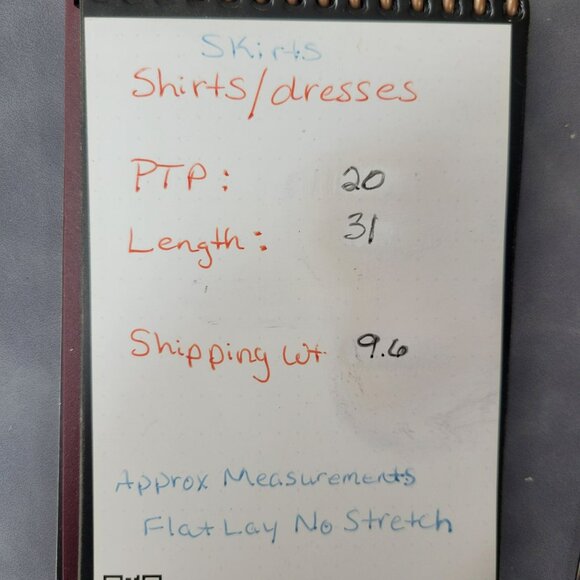 Skirts
Shirts/dresses
PTP: 20
Length: 31
Shipping Wt 9.6
Approx Measurements
Flat Lay No Stretch